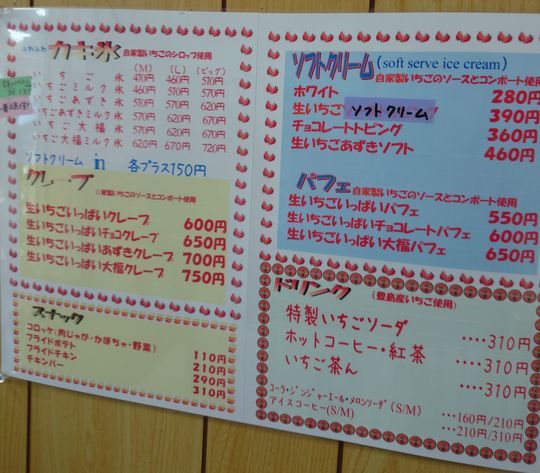 ふわふわ カキ氷 自家製いちごのシロップ使用
(M) (L) (ビッグ)
いちご氷 410円 460円 510円
いちごミルク氷 460円 510円 570円
いちごあずき氷 510円 570円 620円
いちごあずきミルク氷 570円 620円 670円
いちご大福氷 570円 620円 670円
いちご大福ミルク氷 620円 670円 720円
ソフトクリーム in 各プラス150円
クレープ 自家製いちごのソースとコンポート使用
生いちごいっぱいクレープ 600円
生いちごいっぱいチョコクレープ 650円
生いちごいっぱいあずきクレープ 700円
生いちごいっぱい大福クレープ 750円
スナック
コロッケ(肉じゃが・かぼちゃ・野菜) 110円
フライドポテト 210円
フライドチキン 290円
チキンバー 310円
ソフトクリーム(soft serve ice cream)
自家製いちごのソースとコンポート使用
ホワイト 280円
生いちごソフトクリーム 390円
チョコレートトピング 360円
生いちごあずきソフト 460円
パフェ 自家製いちごのソースとコンポート使用
生いちごいっぱいパフェ 550円
生いちごいっぱいチョコレートパフェ 600円
生いちごいっぱい大福パフェ 650円
ドリンク (豊島産いちご使用)
特製いちごソーダ ････310円
ホットコーヒー・紅茶 ････310円
いちご茶ん ････310円
コーラ・ジンジャーエール・メロンソーダ(S/M) ･･･160円/210円
アイスコーヒー(S/M) ･･･210円/310円